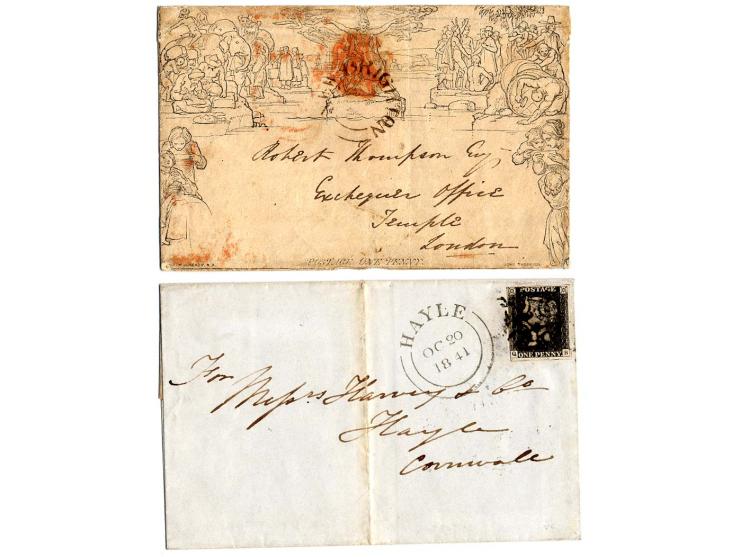 Robert Thompson Esq
Exchequer Office
Temple
London
POSTAGE ONE PENNY.
HAYLE
OC 20
1841
POSTAGE
ONE PENNY
For
Messrs Harvey & Co
Hayle
Cornwall